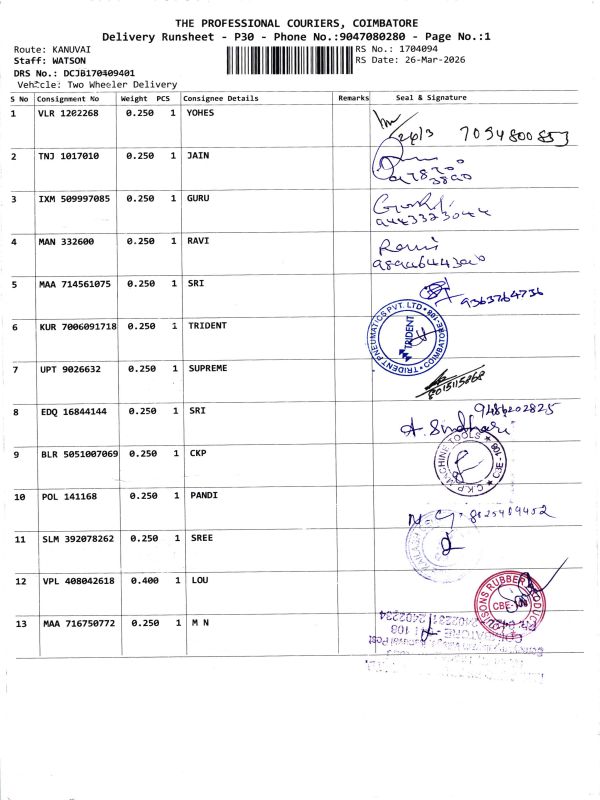 THE PROFESSIONAL COURIERS, COIMBATORE
Delivery Runsheet - P30 - Phone No.:9047080280 - Page No.:1
Route: KANUVAI RS No.: 1704094
Staff: WATSON RS Date: 26-Mar-2026
DRS No.: DCJB170409401
Vehicle: Two Wheeler Delivery
S No Consignment No Weight PCS Consignee Details Remarks Seal & Signature
1 VLR 1202268 0.250 1 YOHES
26/3 7094800853
2 TNJ 1017010 0.250 1 JAIN
3 IXM 509997085 0.250 1 GURU
9443323044
4 MAN 332600 0.250 1 RAVI Ravi
5 MAA 714561075 0.250 1 SRI 9363764736
6 KUR 7006091718 0.250 1 TRIDENT
TRIDENT PNEUMATICS PVT. LTD COIMBATORE-108
TRIDENT
7 UPT 9026632 0.250 1 SUPREME
8015115068
8 EDQ 16844144 0.250 1 SRI 9486202825
A. Sindhuri
9 BLR 5051007069 0.250 1 CKP
C.K.P MACHINE TOOLS CBE - 108
10 POL 141168 0.250 1 PANDI
11 SLM 392078262 0.250 1 SREE
12 VPL 408042618 0.400 1 LOU
RUBBER PRODUCTS
CBE-108
13 MAA 716750772 0.250 1 M N